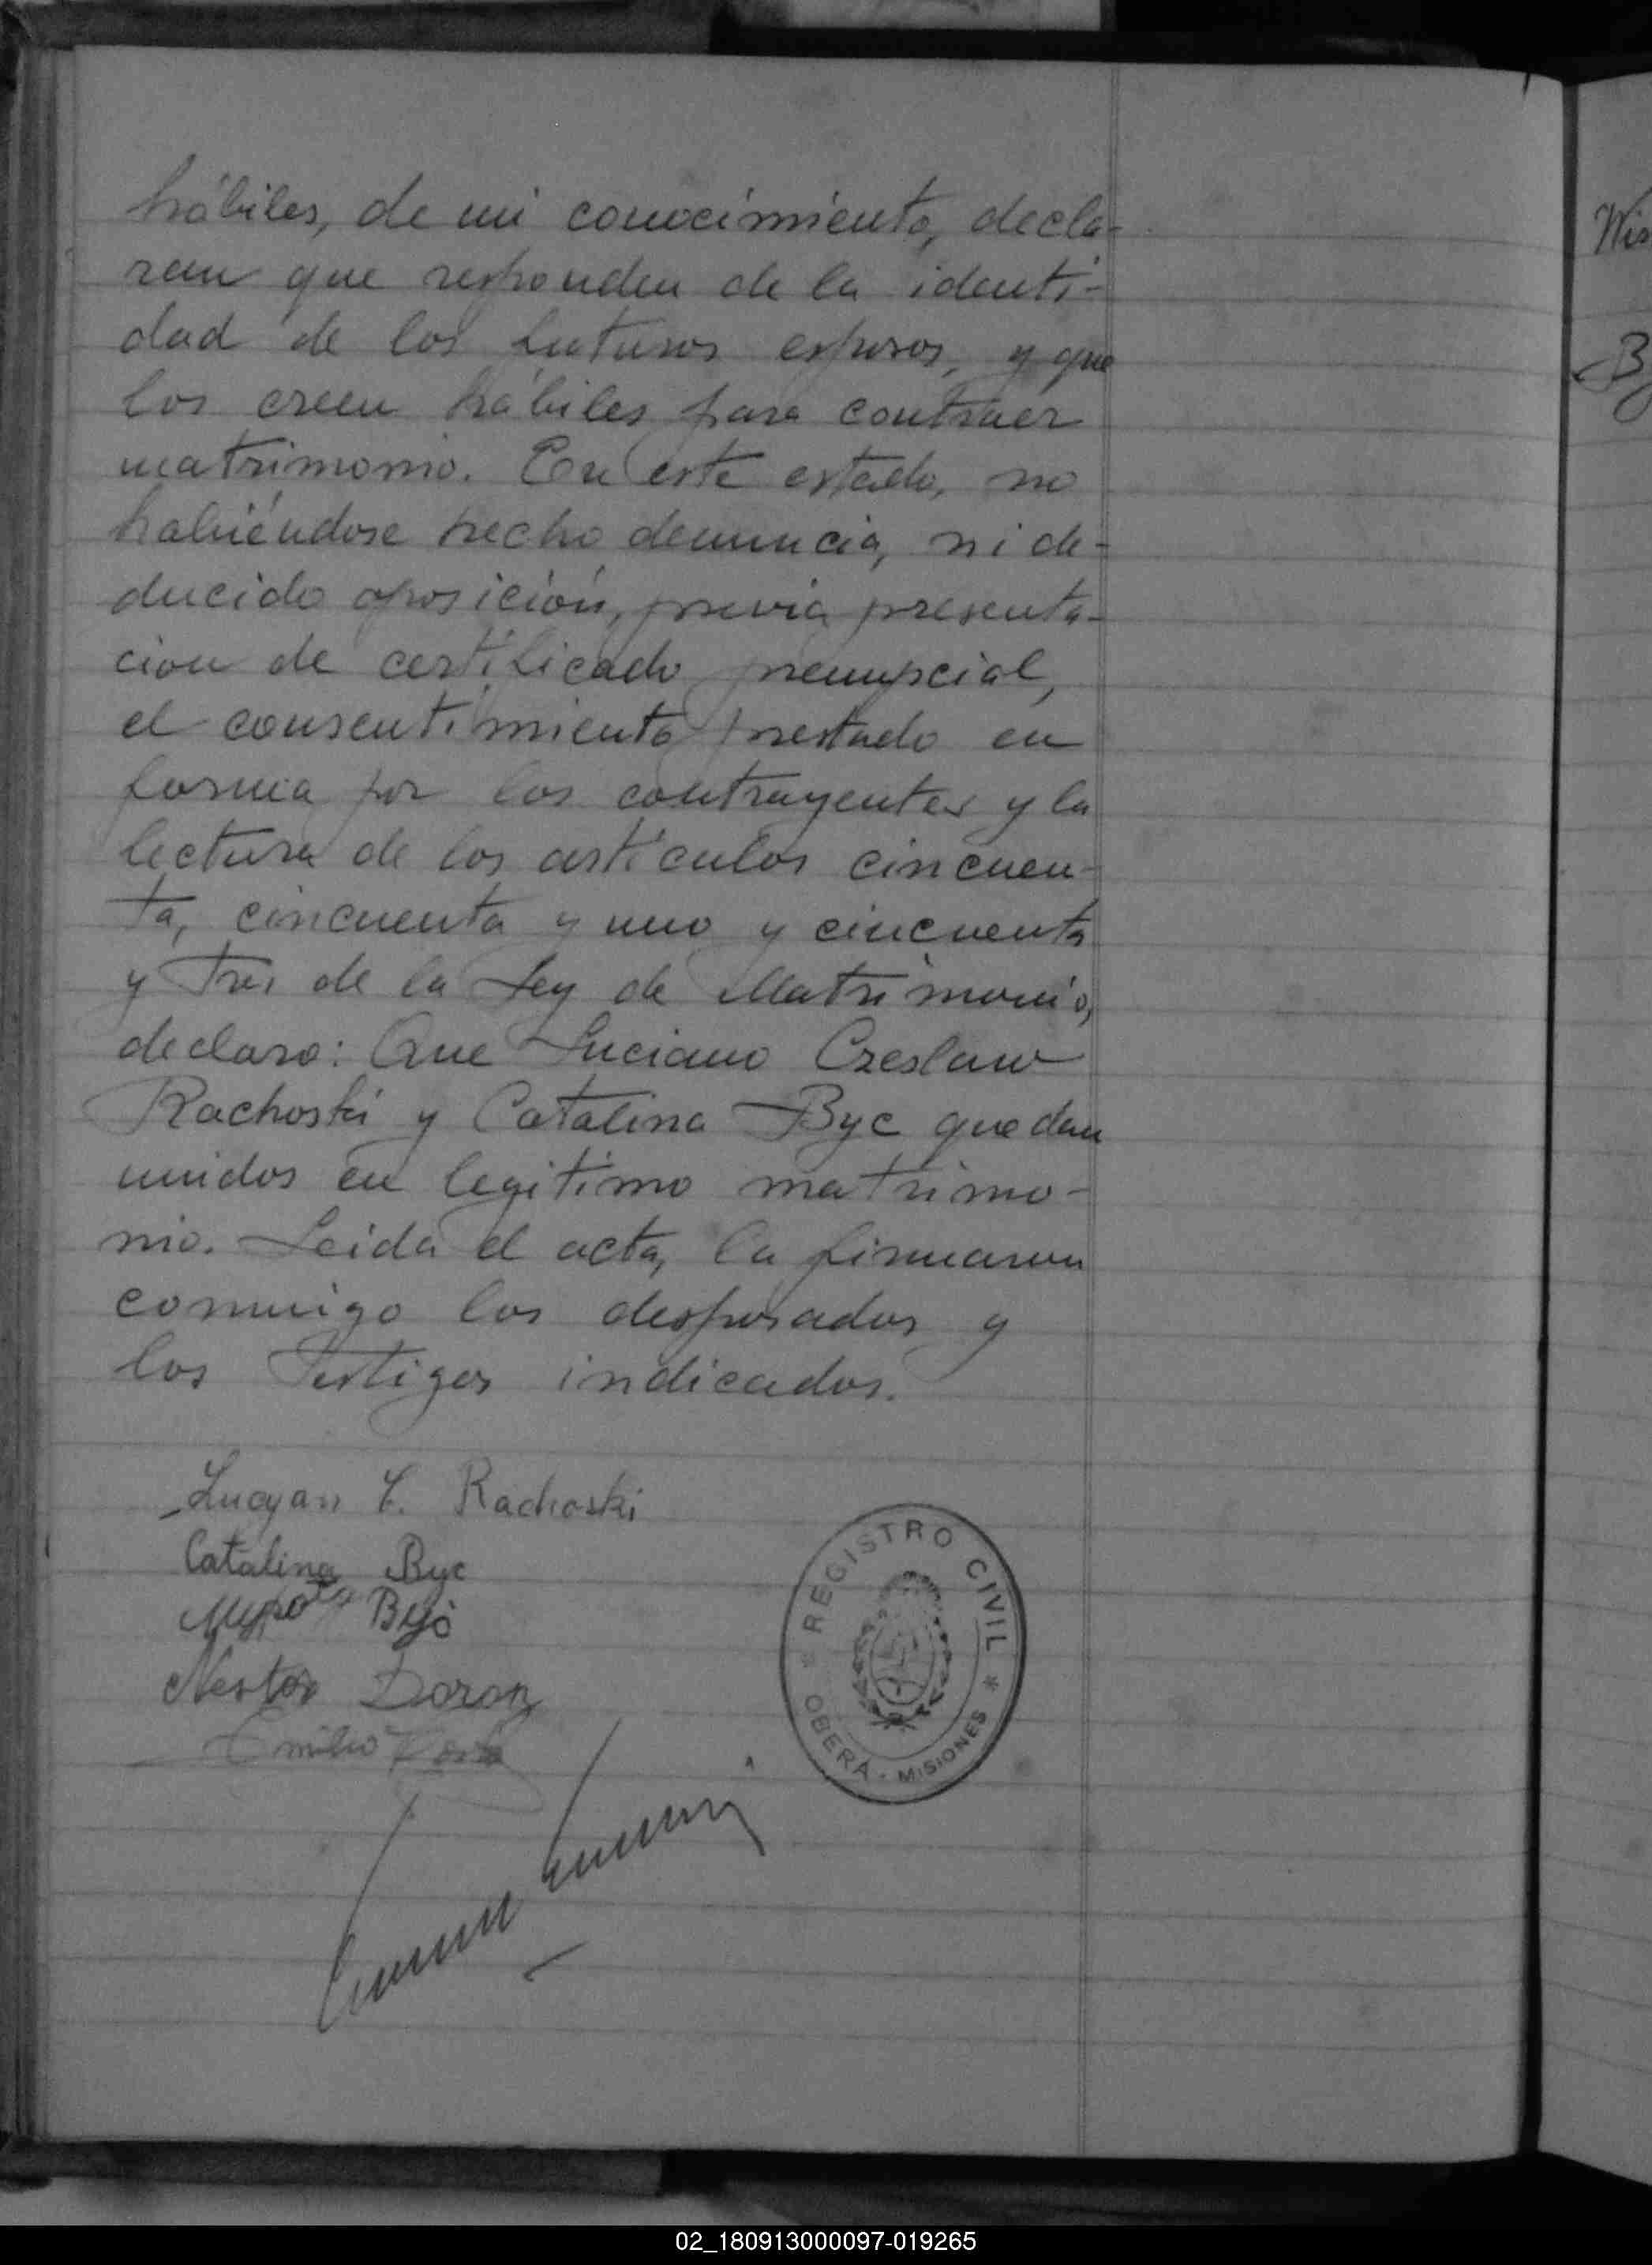 hábiles, de mi conocimiento, decla-
ran que responden de la identi-
dad de los futuros esposos, y que
los creen hábiles para contraer
matrimonio. En este estado, no
habiéndose hecho denuncia, ni de-
ducido oposición, previa presenta-
cion de certificado prenupcial,
el consentimiento prestado en
forma por los contrayentes y la
lectura de los artículos cincuen-
ta, cincuenta y uno y cincuenta
y tres de la Ley de Matrimonio,
declaro: Que Luciano Czeslaw
Rachoski y Catalina Byc quedan
unidos en legitimo matrimo-
nio. Leida el acta, la firmaron
conmigo los desposados y
los testigos indicados.
Lucyan C. Rachoski
Catalina Byc
Nestor
Emilio
REGISTRO CIVIL
OBERÁ - MISIONES
Wis
B
02_180913000097-019265